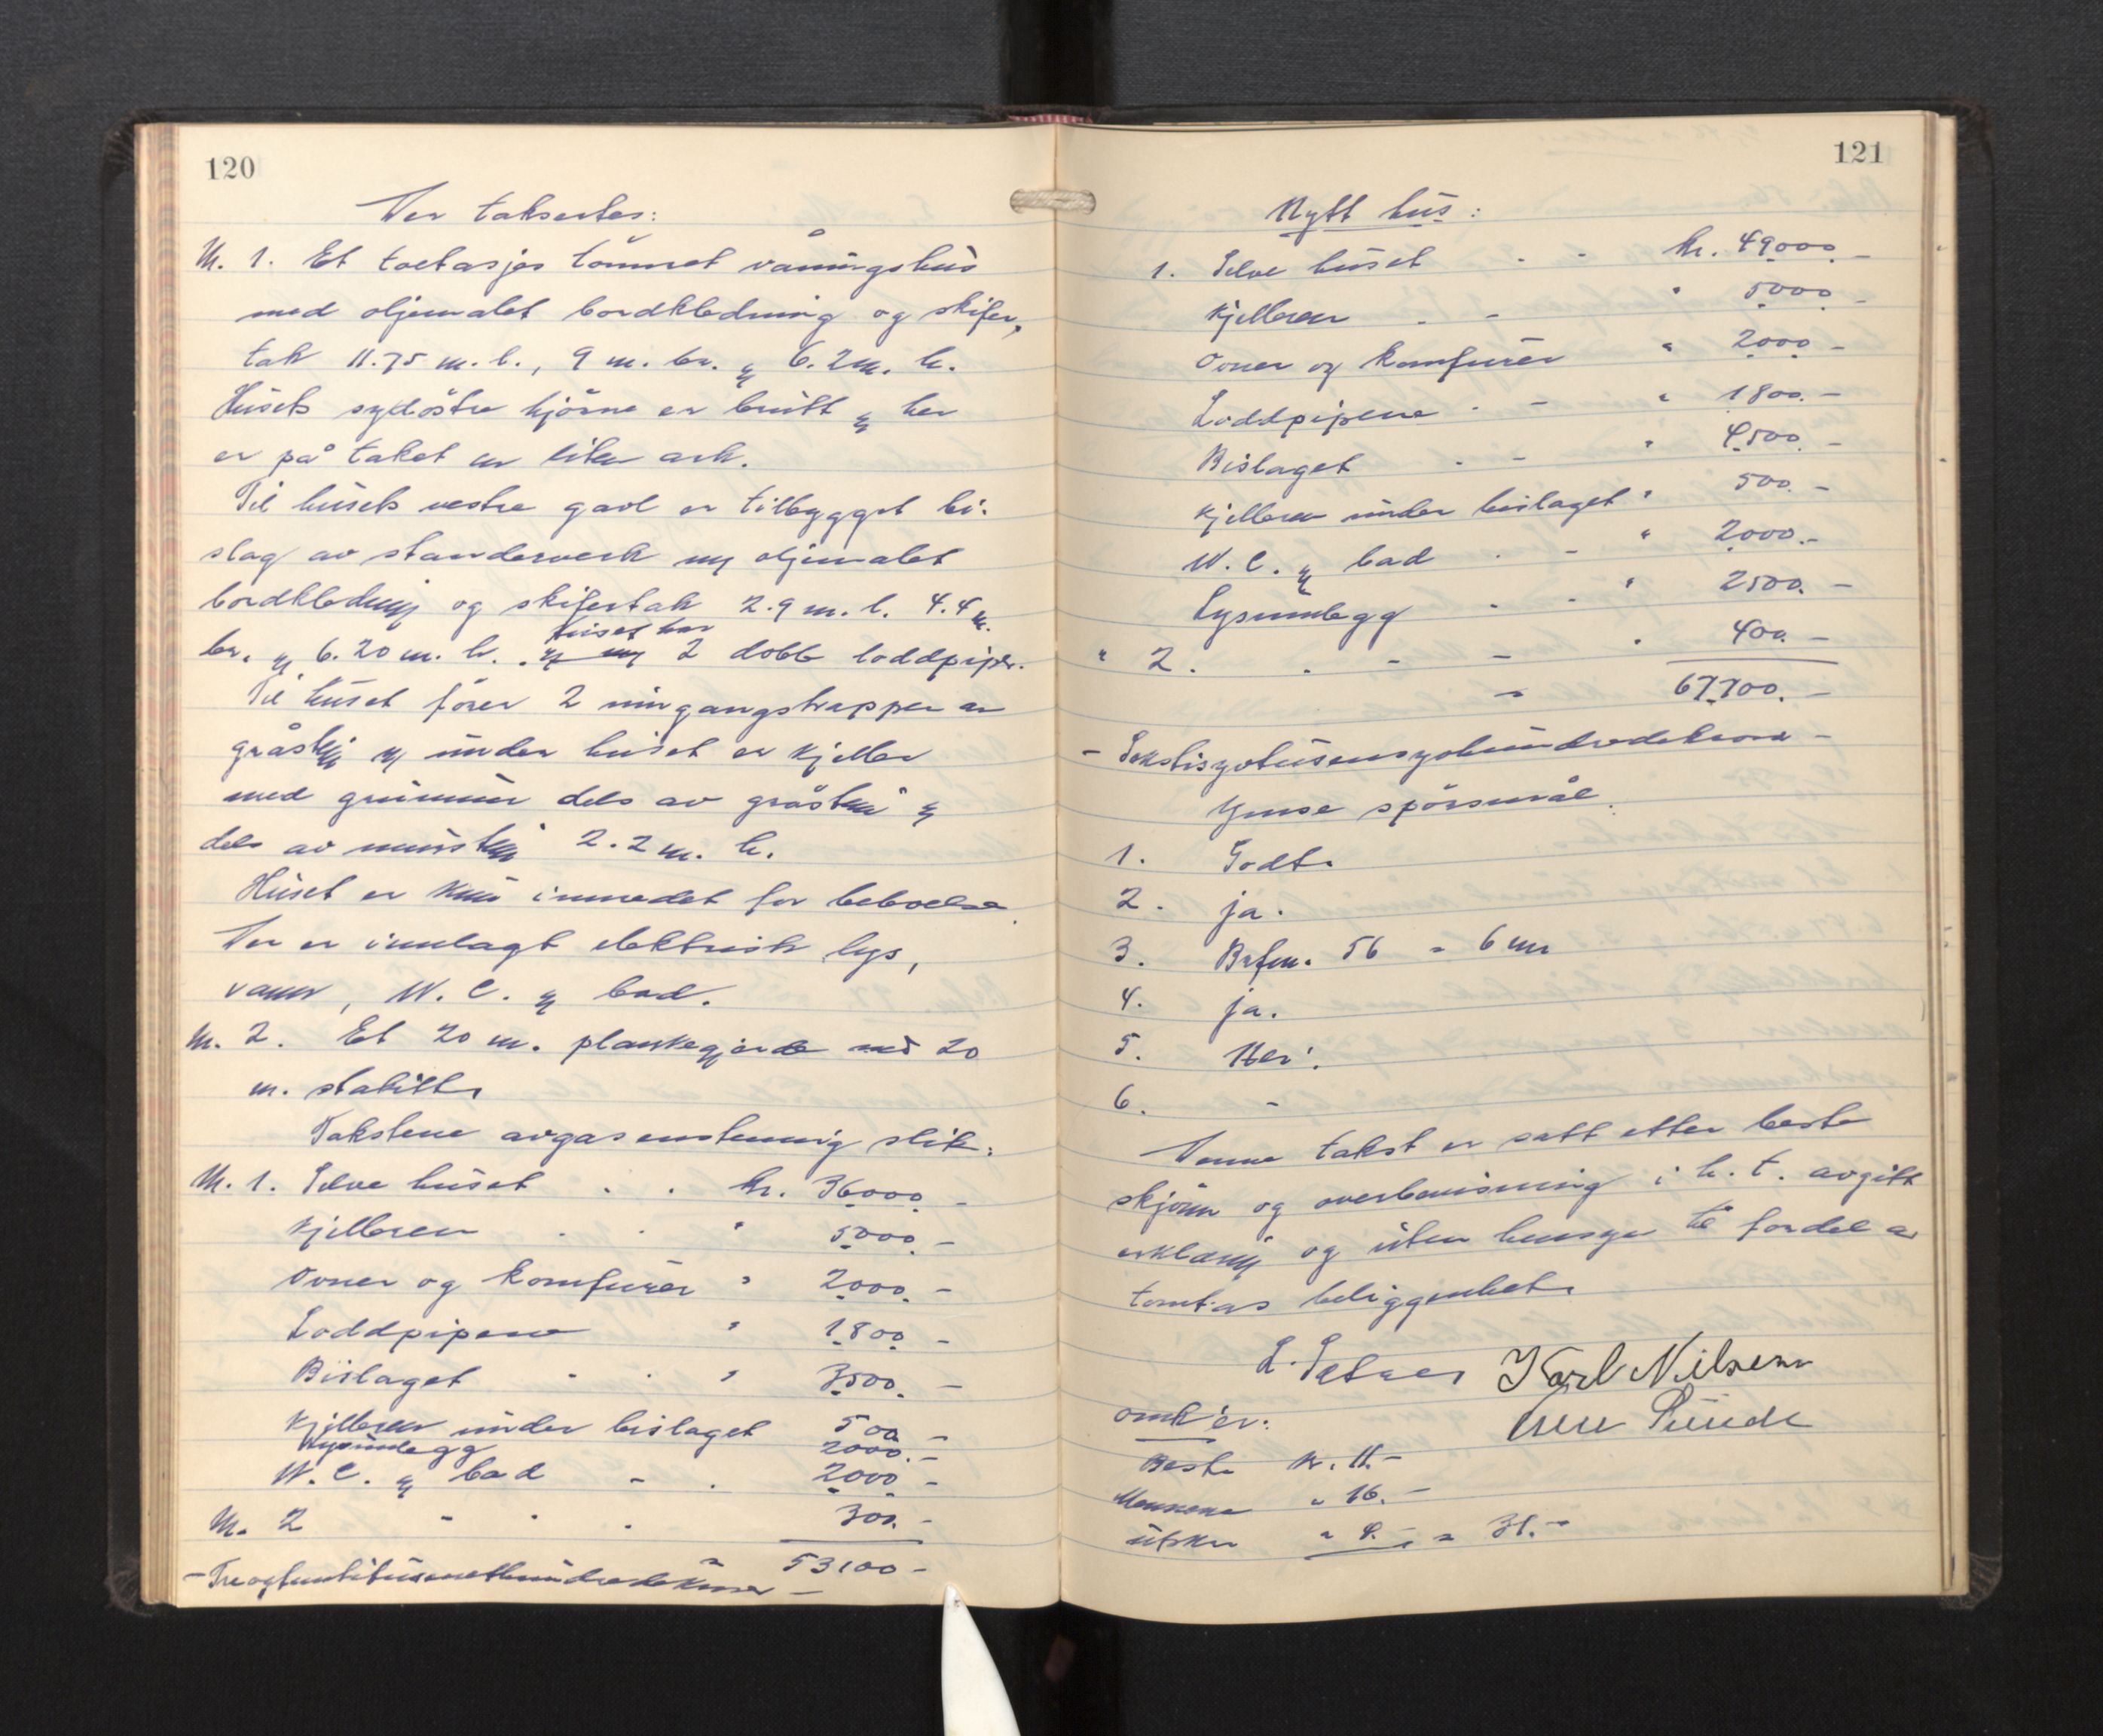 120
Der takseres:
M. 1. Et toetasjes tömret våningshus
med oljemalet bordkledning og skifer,
tak 11.75 m. l., 9 m. br. og 6.2 m. h.
Husets sydöstre hjörne er brutt og her
er på taket en liten ark.
Til husets vestre gavl er tilbygget bi-
slag av standerverk m/ oljemalet
bordkledning og skifertak 2.9 m. l. 4.4 m.
huset har
br. og 6.20 m. h. 2 dobb loddpiper.
Til huset förer 2 inngangstrapper av
gråstein og under huset er kjeller
med grunnmur dels av gråstein og
dels av murstein 2.2 m. h.
Huset er kun innredet for beboelse.
Der er innlagt elektrisk lys,
vann, W. C. og bad.
M. 2. Et 20 m. plankegjerde med 20
m. stakitt.
Takstene avgas enstemmig slik:
M. 1. Selve huset . . kr. 36000. -
Kjelleren . . " 5000. -
Ovner og komfurer " 2000. -
Loddpipene " 1800. -
Bislaget - . " 3500. -
Kjelleren under bislaget 500. -
Lysinnlegg 2000. -
W. C. og bad - . 2000 -
M. 2 - . . 300. -
53100 -
- Treogfemtitusenetthundredekroner -
121
Nytt hus:
1. Selve huset - - kr. 49000. -
Kjelleren . - " 5000 -
Ovner og komfurer " 2000 -
Loddpipene . - " 1800. -
Bislaget . - " 4500. -
Kjelleren under bislaget " 500. -
W. C. og bad . - " 2000. -
Lysinnlegg . - " 2500. -
" 2. . - - . 400. -
67700. -
- Sekstisyvtusensyvhundredekroner -
Ymse spörsmål.
1. Godt.
2. ja.
3. Brfm. 56 = 6 mm
4. ja.
5. Nei.
6. -
Denne takst er satt etter beste
skjönn og overbevisning i h. t. avgitt
erklæring og uten hensyn til fordel av
tomtas beliggenhet.
Karl Nilsen
omk'er:
Best. kr. 11. -
Mennene " 16. -
utskr " 4. - = 31. -